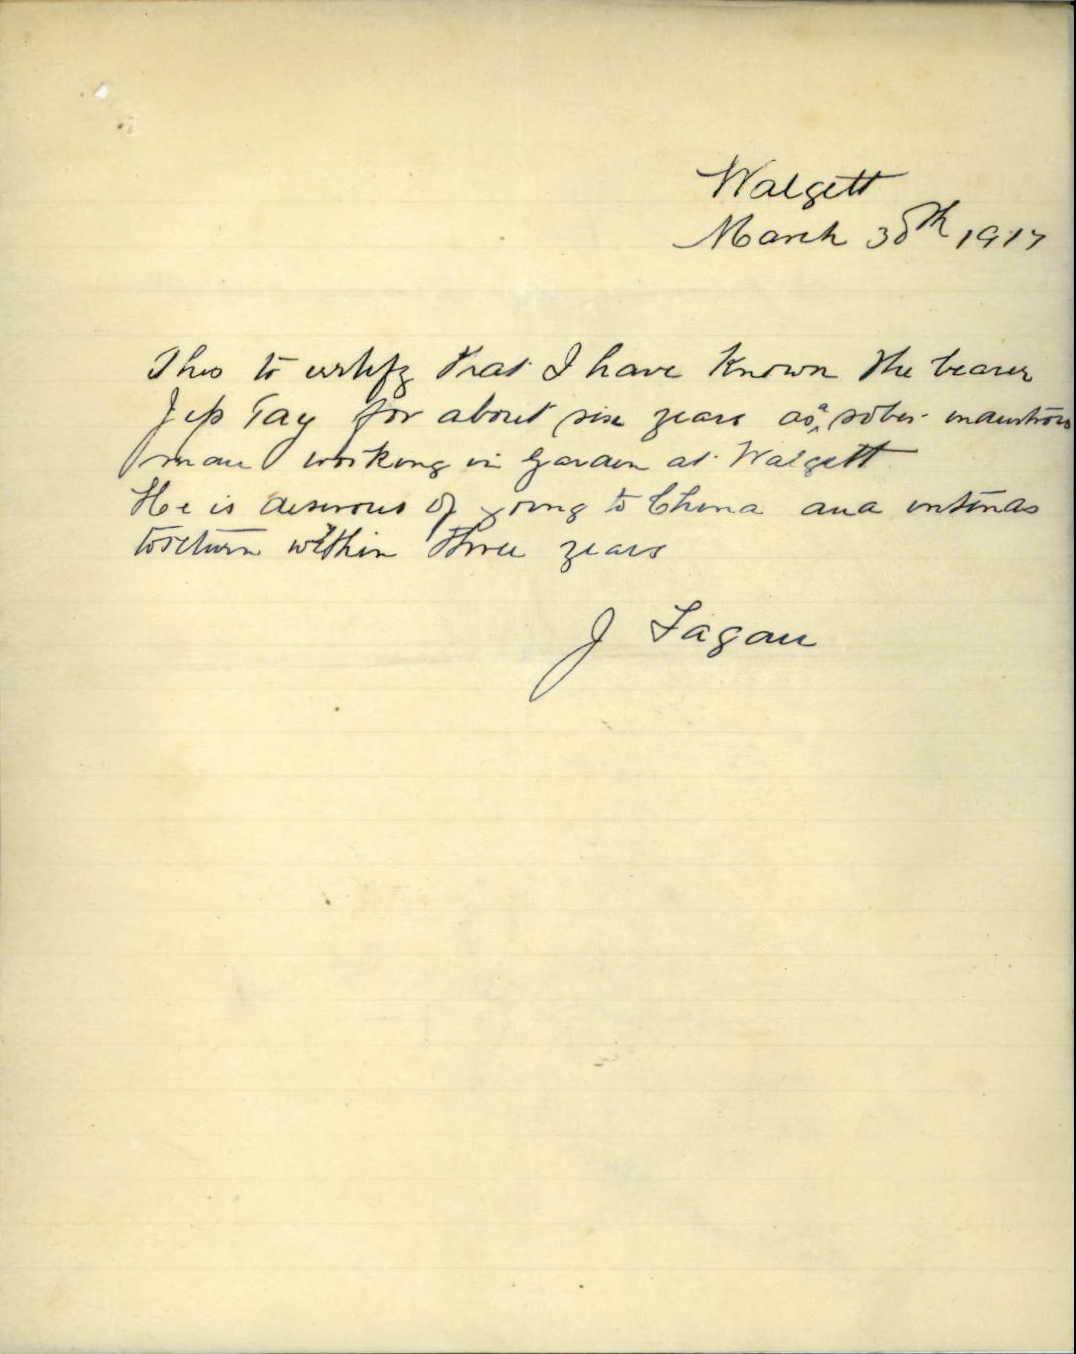 Walgett
March 30th 1917
This to certify that I have known the bearer
Jep Tay for about six years as a sober industrious
man working in Garden at Walgett
He is desirous of going to China and intends
to return within three years
J Fagan